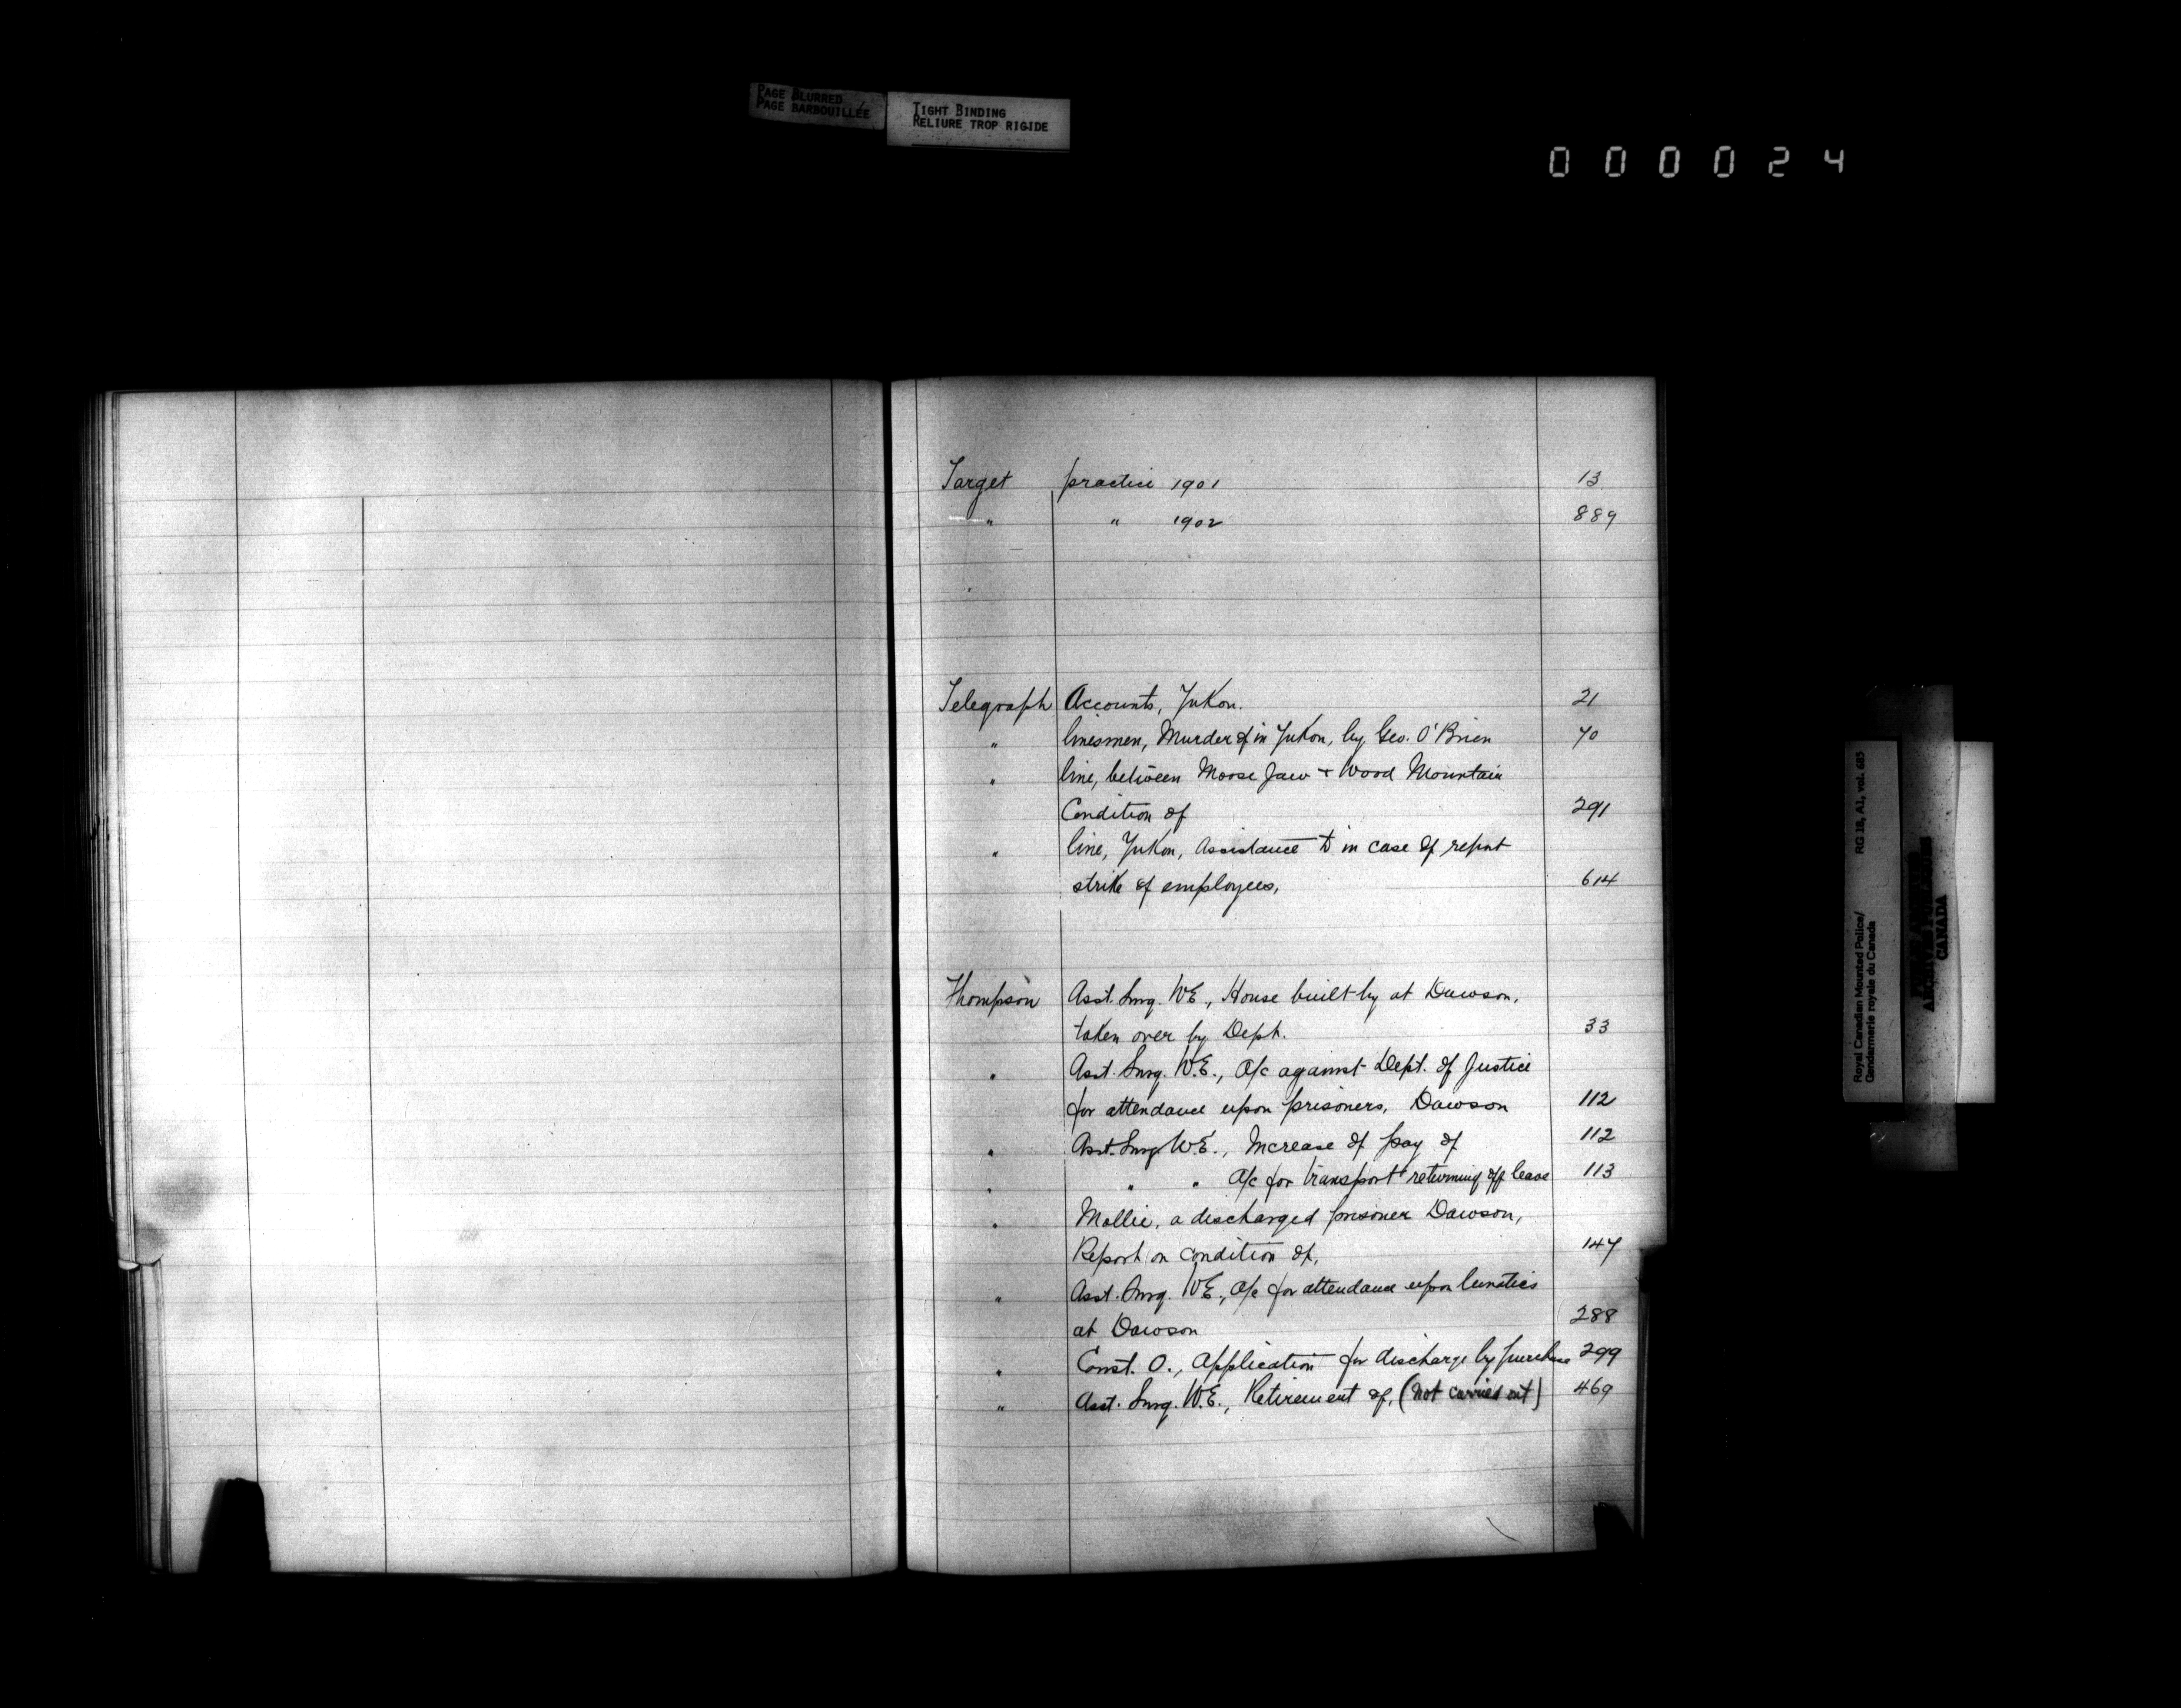 PAGE BLURRED
PAGE BARBOUILLÉE
TIGHT BINDING
RELIURE TROP RIGIDE
000024
Target practice 1901 13
" " 1902 889
Telegraph Accounts, Yukon. 21
" linesmen, Murder of in Yukon, by Geo. O'Brien 70
" line, between Moose Jaw + Wood Mountain
Condition of 291
" line, Yukon, Assistance to in case of
strike of employees, 614
Thompson Asst. Surg. WE, House built by at Dawson,
taken over by Dept. 33
" Asst. Surg. W.E., a/c against Dept. of Justice
for attendance upon prisoners, Dawson 112
" Asst. Surg. W.E., Increase of pay of 112
" " " a/c for transport returning off leave 113
" Mollie, a discharged prisoner Dawson,
Report on condition of, 147
" Asst. Surg. WE., a/c for attendance upon lunatics
at Dawson 288
" Const. O., Application for discharge by purchase 299
" Asst. Surg. W.E., Retirement of, (not carried out) 469
Royal Canadian Mounted Police/ RG 18, A1, vol. 685
Gendarmerie royale du Canada
CANADA